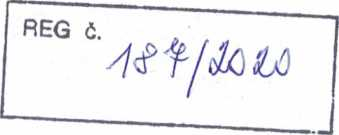 REG č.
187/2020